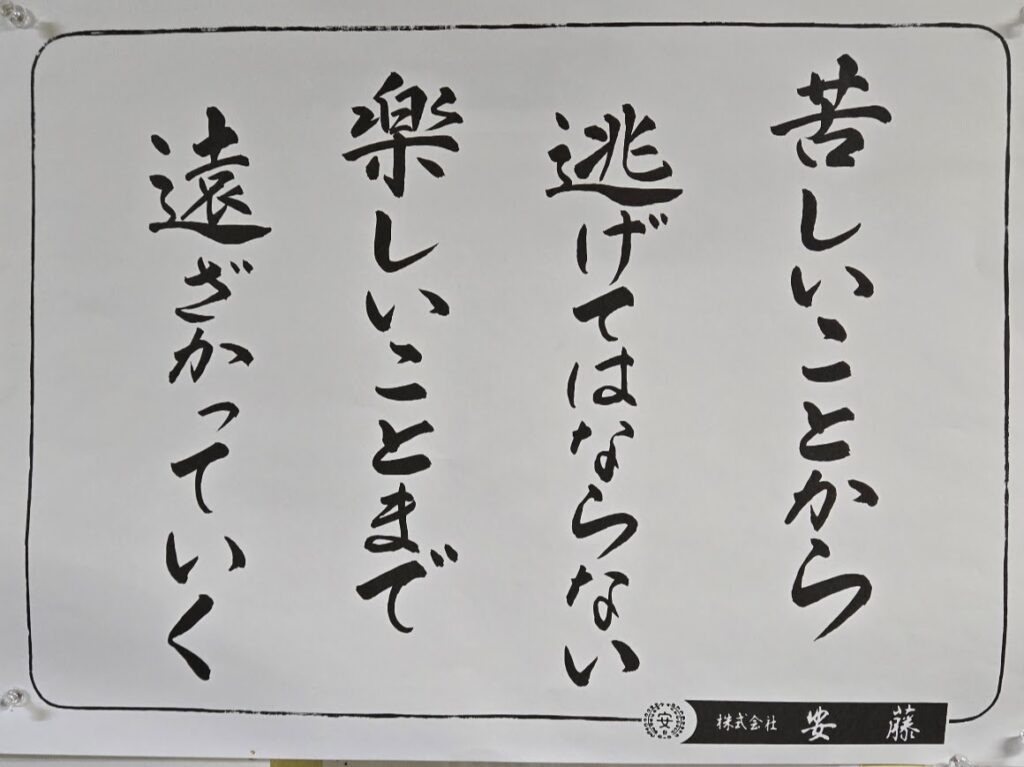 苦しいことから
逃げてはならない
楽しいことまで
遠ざかっていく
安
株式会社 安藤